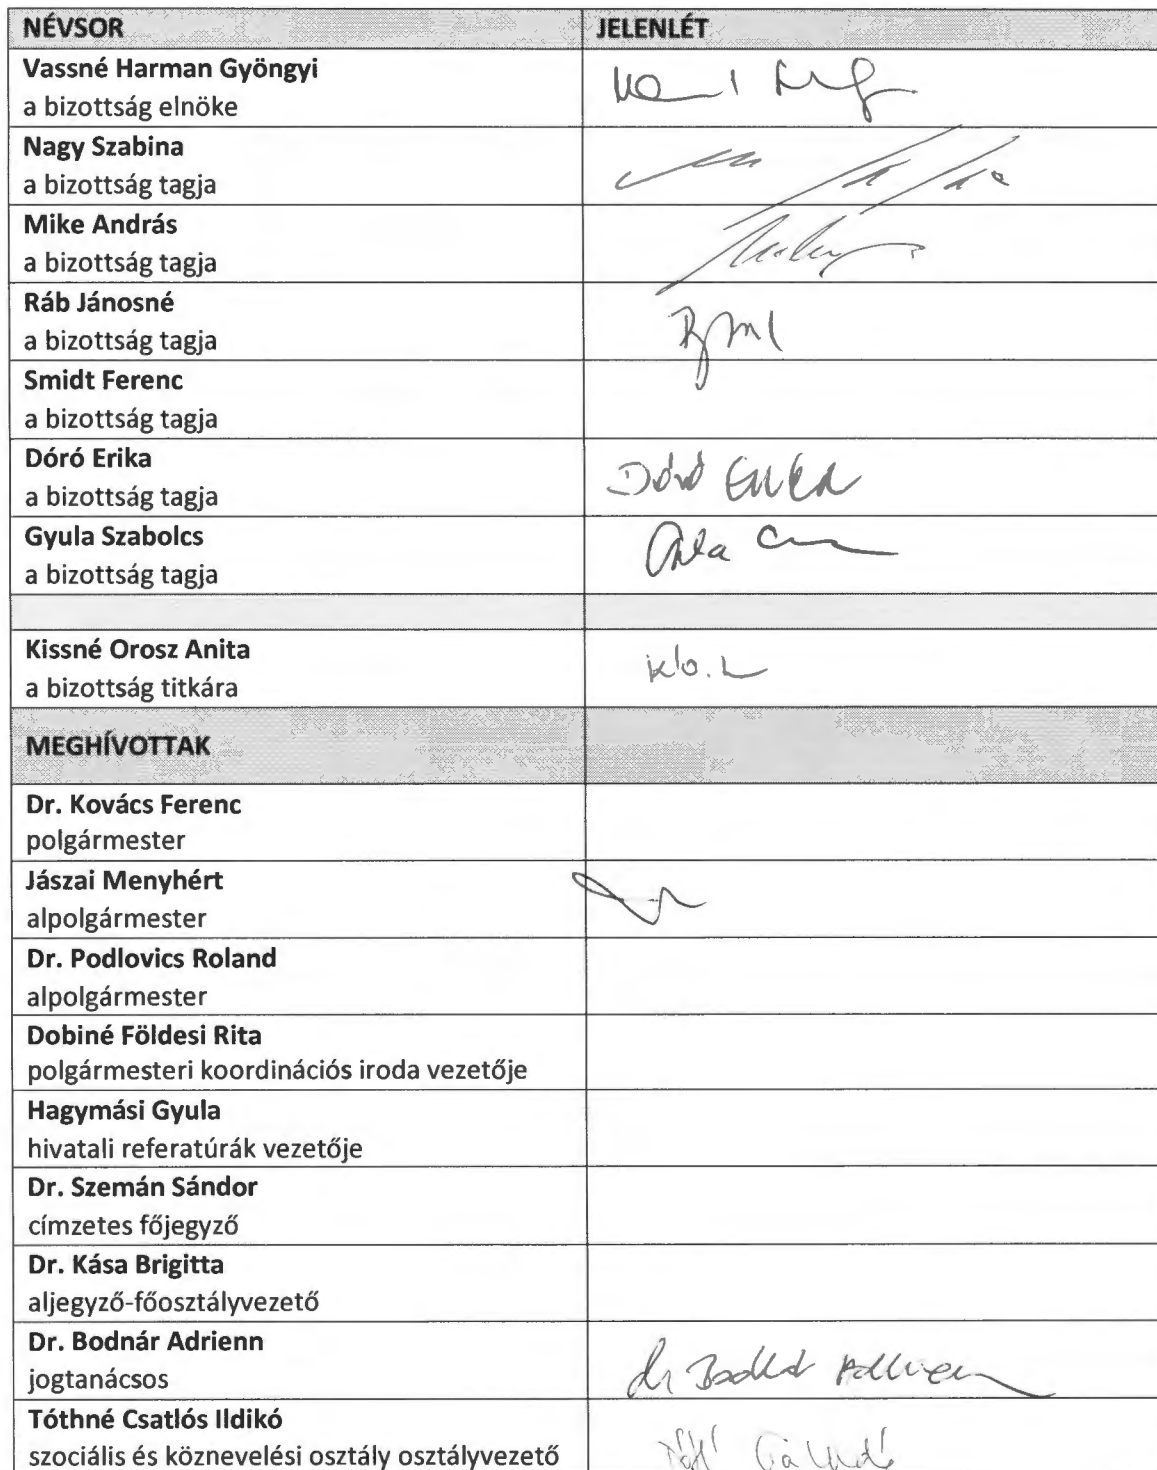 NÉVSOR JELENLÉT
Vassné Harman Gyöngyi
a bizottság elnöke
Nagy Szabina
a bizottság tagja
Mike András
a bizottság tagja
Ráb Jánosné
a bizottság tagja
Smidt Ferenc
a bizottság tagja
Dóró Erika
a bizottság tagja
Dóró Erika
Gyula Szabolcs
a bizottság tagja
Kissné Orosz Anita
a bizottság titkára
MEGHÍVOTTAK
Dr. Kovács Ferenc
polgármester
Jászai Menyhért
alpolgármester
Dr. Podlovics Roland
alpolgármester
Dobiné Földesi Rita
polgármesteri koordinációs iroda vezetője
Hagymási Gyula
hivatali referatúrák vezetője
Dr. Szemán Sándor
címzetes főjegyző
Dr. Kása Brigitta
aljegyző-főosztályvezető
Dr. Bodnár Adrienn
jogtanácsos
dr Bodnár Adrienn
Tóthné Csatlós Ildikó
szociális és köznevelési osztály osztályvezető